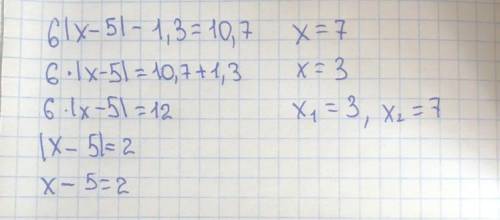 6|x-5| - 1,3 = 10,7
6·|x-5| = 10,7+1,3
6·|x-5| = 12
|x-5| = 2
x-5 = 2
x = 7
x = 3
x₁ = 3, x₂ = 7